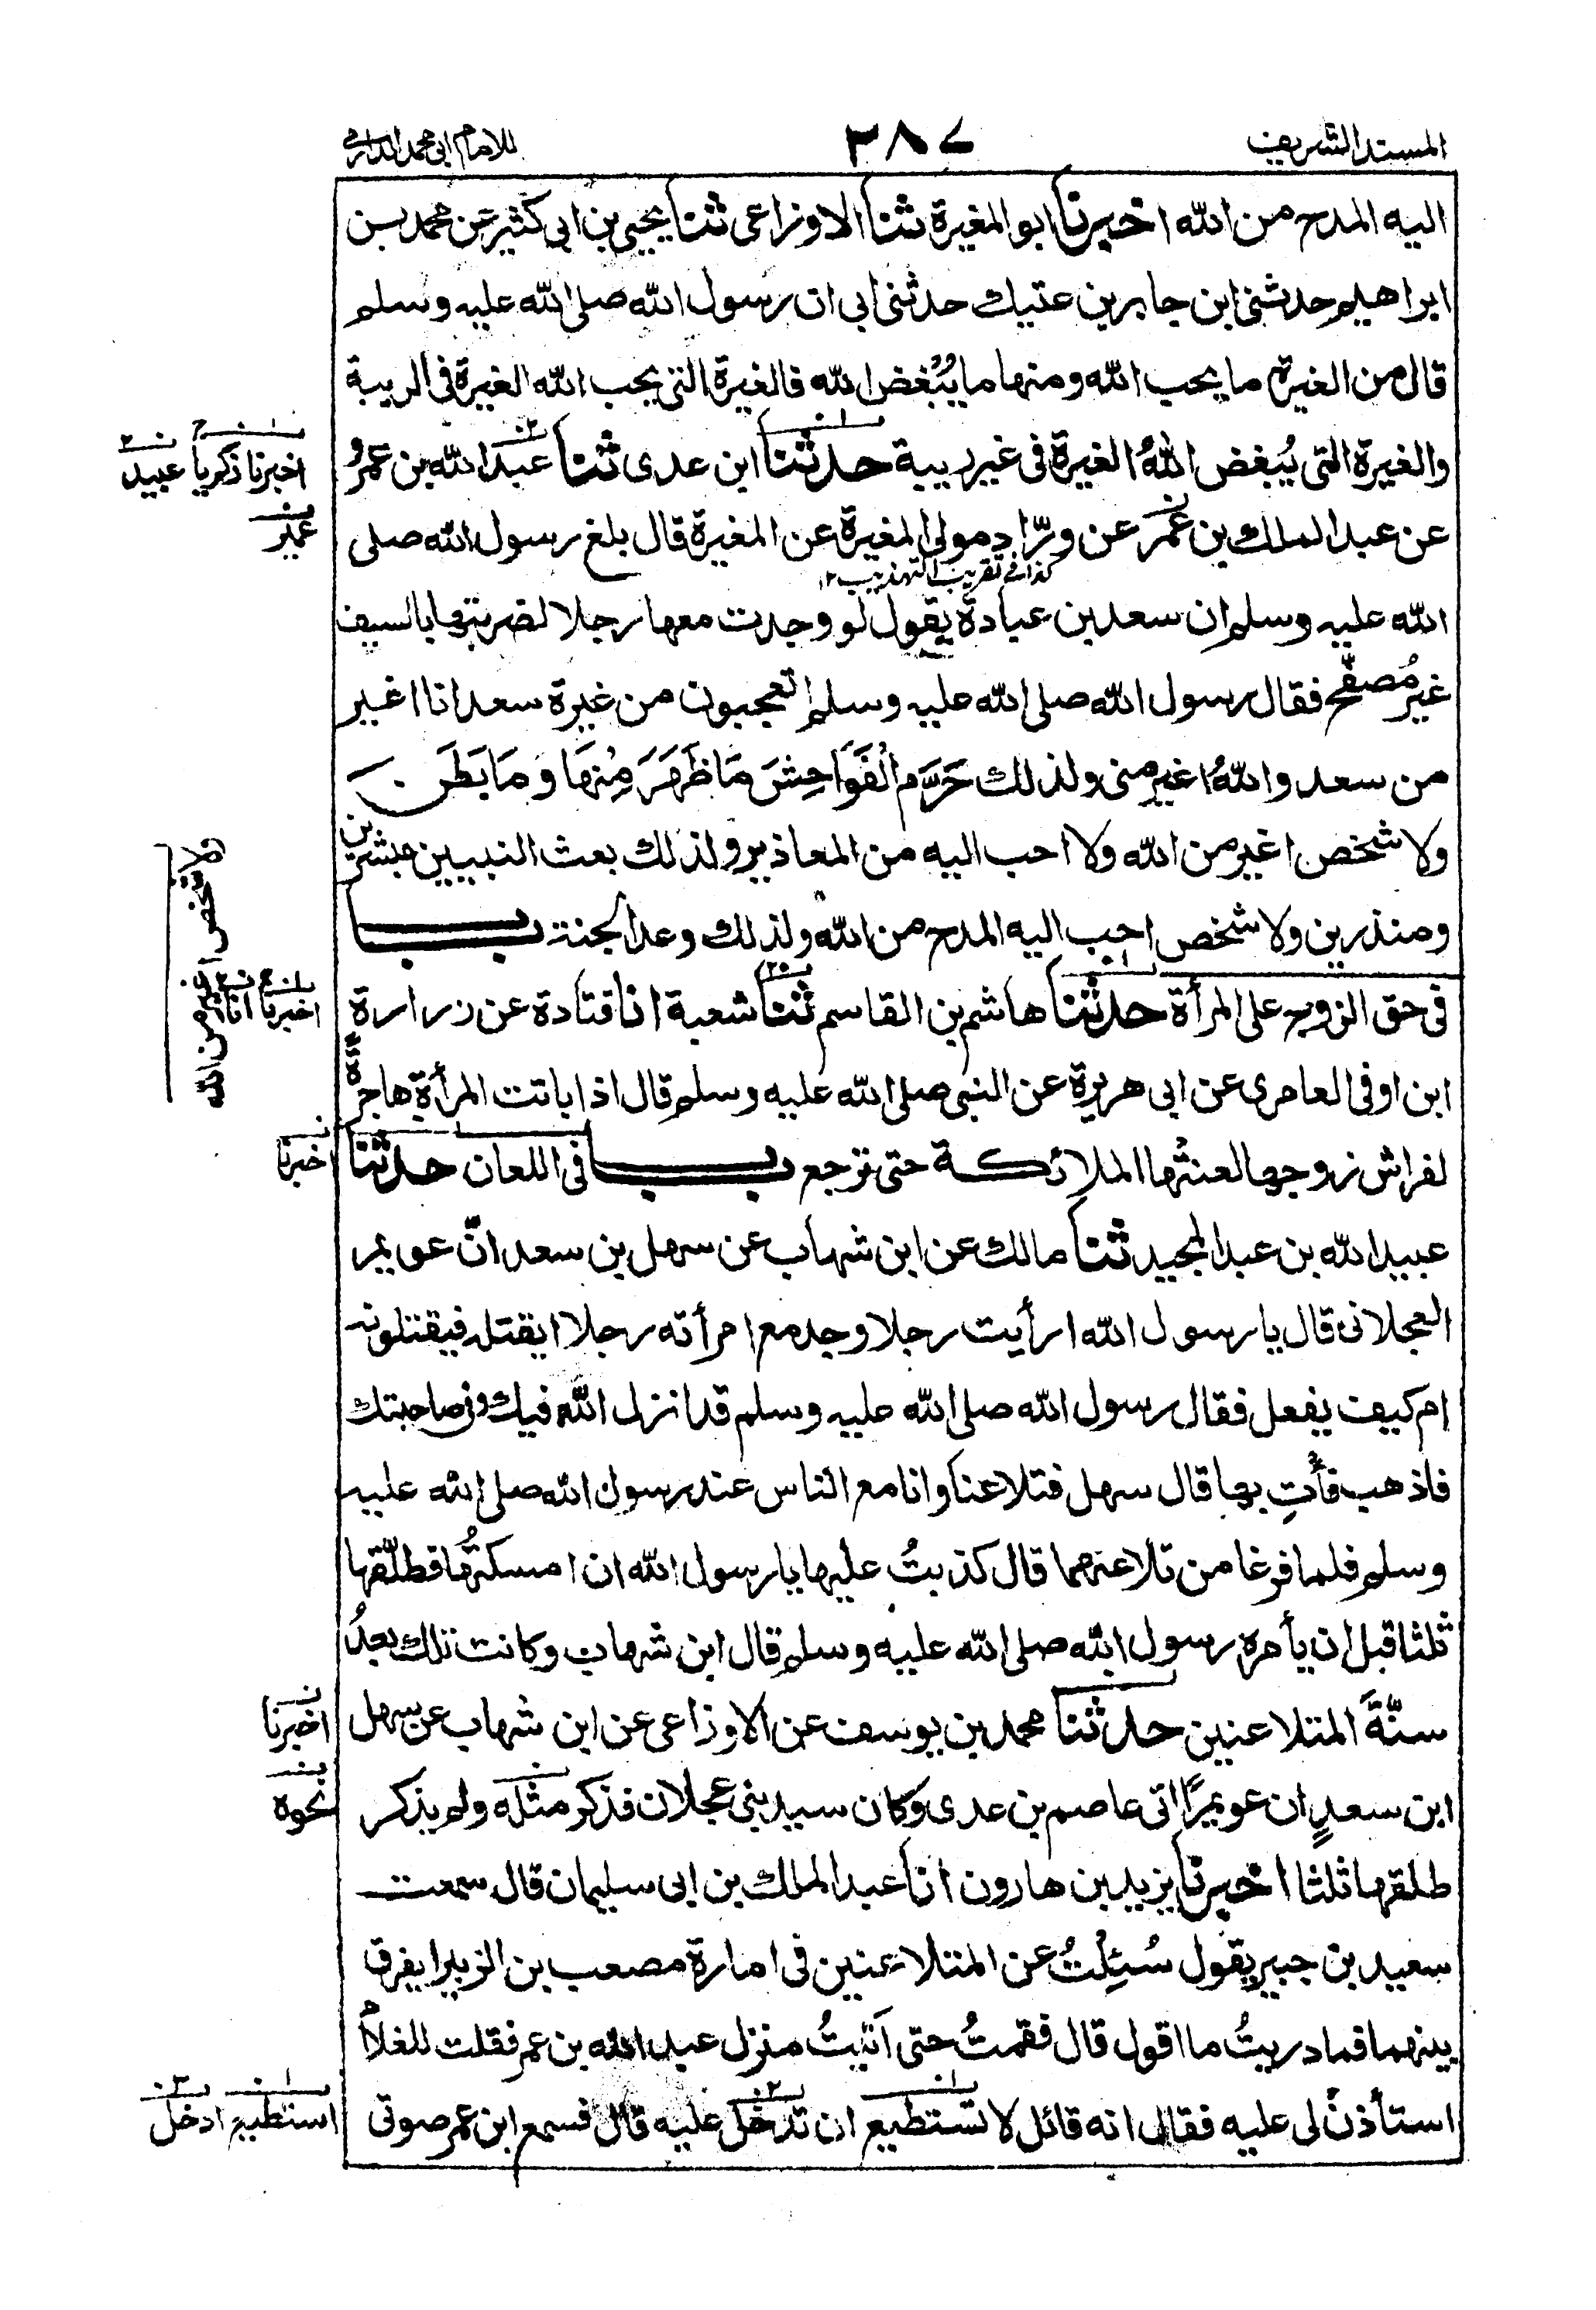 المسند الشريف
٣٨٧
للامام ابى محمد الدارمى
اليه المدح من الله اخبرنا ابو المغيرة ثنا الاوزاعى ثنا يحيى بن ابى كثير عن محمد بن
ابراهيم حدثنى ابن جابر بن عتيك حدثنى ابى ان رسول الله صلى الله عليه وسلم
قال من الغيرة ما يحب الله ومنها ما يُبغض الله فالغيرة التى يحب الله الغيرة فى الريبة
والغيرة التى يُبغض اللهُ الغيرة فى غير ريبة حدثنا ابن عدى ثنا عبد الله بن عمرو
اخبرنا زكريا عبيد
عن عبد الملك بن عمر عن ورّاد مولى المغيرة عن المغيرة قال بلغ رسول الله صلى
عمير
كذا فى تقريب التهذيب ١٢
الله عليه وسلم ان سعد بن عبادة يقول لو وجدت معها رجلا لضربتها بالسيف
غير مُصفّح فقال رسول الله صلى الله عليه وسلم اتعجبون من غيرة سعد انا اغير
من سعد واللهُ اغير منى ولذلك حَرَّم الْفَوَاحِشَ مَا ظَهَرَ مِنْهَا وَمَا بَطَنَ
ولا شخص اغير من الله ولا احب اليه من المعاذير ولذلك بعث النبيين مبشرين
ولا شخص اغير من الله
ومنذرين ولا شخص احب اليه المدح من الله ولذلك وعد الجنة باب
فى حق الزوج على المرأة حدثنا هاشم بن القاسم ثنا شعبة انا قتادة عن زرارة
اخبرنا انا
ابن اوفى العامرى عن ابى هريرة عن النبى صلى الله عليه وسلم قال اذا باتت المرأة هاجرة
لفراش زوجها لعنتها الملائكة حتى ترجع باب فى اللعان حدثنا
اخبرنا
عبيد الله بن عبد المجيد ثنا مالك عن ابن شهاب عن سهل بن سعد انّ عويمر
العجلانى قال يا رسول الله ارأيت رجلا وجد مع امرأته رجلا ايقتله فيقتلونه
ام كيف يفعل فقال رسول الله صلى الله عليه وسلم قد انزل الله فيك وفى صاحبتك
فاذهب فأتِ بها قال سهل فتلاعنا وانا مع الناس عند رسول الله صلى الله عليه
وسلم فلما فرغا من تلاعنهما قال كذبتُ عليها يا رسول الله ان امسكتُها فطلّقها
ثلثا قبل ان يأمره رسول الله صلى الله عليه وسلم قال ابن شهاب وكانت تلك بعدُ
سنّةَ المتلاعنين حدثنا محمد بن يوسف عن الاوزاعى عن ابن شهاب عن سهل
اخبرنا
ابن سعدٍ ان عويمرًا اتى عاصم بن عدى وكان سيد بنى عجلان فذكر مثله ولم يذكر
نحوه
طلقها ثلثا اخبرنا يزيد بن هارون انا عبد الملك بن ابى سليمان قال سمعت
سعيد بن جبير يقول سُئِلْتُ عن المتلاعنين فى امارة مصعب بن الزبير ايفرق
بينهما فما دريتُ ما اقول قال فقمتُ حتى اتيتُ منزل عبد الله بن عمر فقلت للغلام
استأذنْ لى عليه فقال انه قائل لا تستطيع ان تدخل عليه قال فسمع ابن عمر صوتى
استطيع ادخل